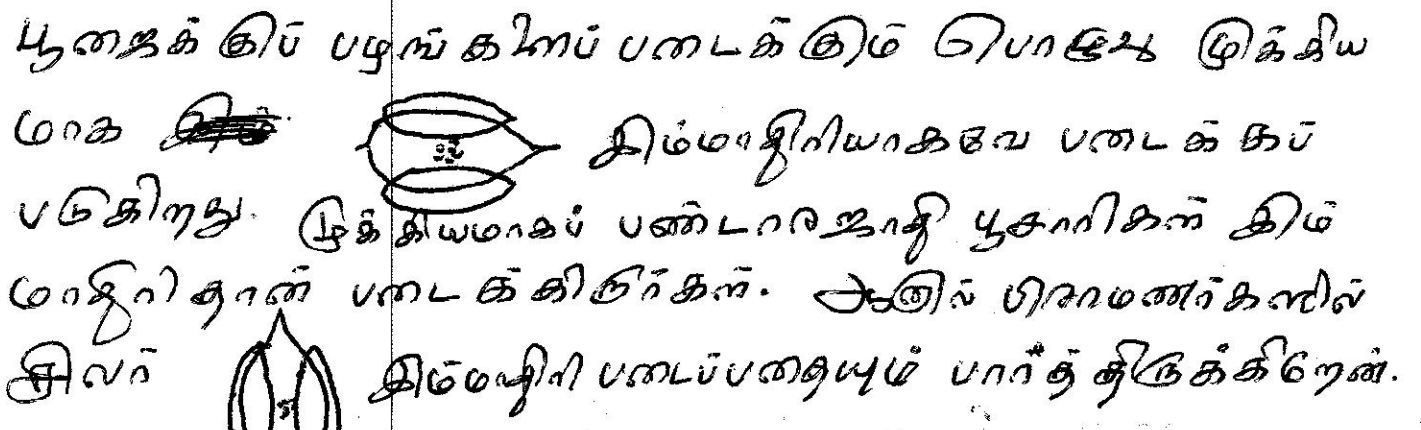 பூஜைக்குப் பழங்களைப் படைக்கும் பொழுது முக்கிய
மாக இம்மாதிரியாகவே படைக்கப்
படுகிறது. முக்கியமாகப் பண்டாரஜாதி பூசாரிகள் இம்
மாதிரிதான் படைக்கிறார்கள். ஆனால் பிராமணர்களில்
சிலர் இம்மாதிரி படைப்பதையும் பார்த்திருக்கிறேன்.